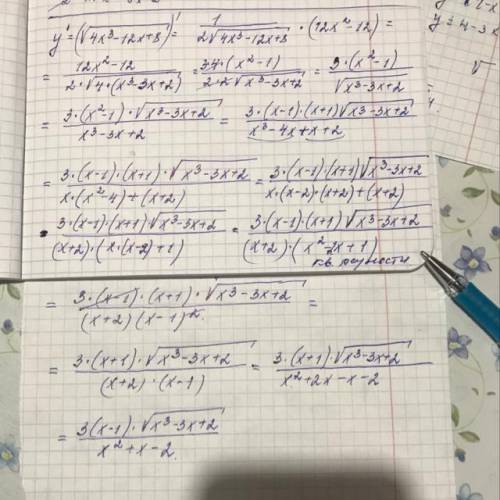 y' = (√(4x³-12x+8))' = 1/(2√(4x³-12x+8)) · (12x²-12) =
= (12x²-12)/(2·√(4·(x³-3x+2))) = (3·4·(x²-1))/(2·2√(x³-3x+2)) = (3·(x²-1))/√(x³-3x+2)
= (3·(x²-1)·√(x³-3x+2))/(x³-3x+2) = (3·(x-1)·(x+1)√(x³-3x+2))/(x³-4x+x+2)
= (3·(x-1)·(x+1)·√(x³-3x+2))/(x·(x²-4)+(x+2)) = (3·(x-1)(x+1)√(x³-3x+2))/(x·(x-2)·(x+2)+(x+2))
(3·(x-1)·(x+1)√(x³-3x+2))/((x+2)·(x·(x-2)+1)) = (3·(x-1)(x+1)√(x³-3x+2))/((x+2)·(x²-2x+1))
кв. разности
= (3·(x-1)·(x+1)·√(x³-3x+2))/((x+2)(x-1)²) =
= (3·(x+1)·√(x³-3x+2))/((x+2)·(x-1)) = (3·(x+1)·√(x³-3x+2))/(x²+2x-x-2)
= (3(x-1)·√(x³-3x+2))/(x²+x-2)